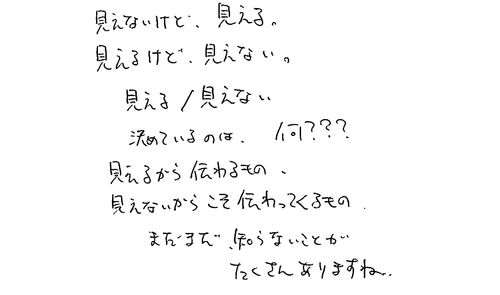 見えないけど、見える。
見えるけど、見えない。
見える/見えない
決めているのは、何???
見えるから伝わるもの、
見えないからこそ伝わってくるもの.
まだまだ、知らないことが
たくさんありますね..